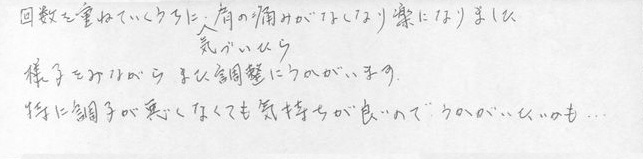 回数を重ねていくうちに、肩の痛みがなくなり楽になりました
気づいたら
様子をみながら また調整にうかがいます。
特に調子が悪くなくても気持ちが良いので うかがいたいかも…